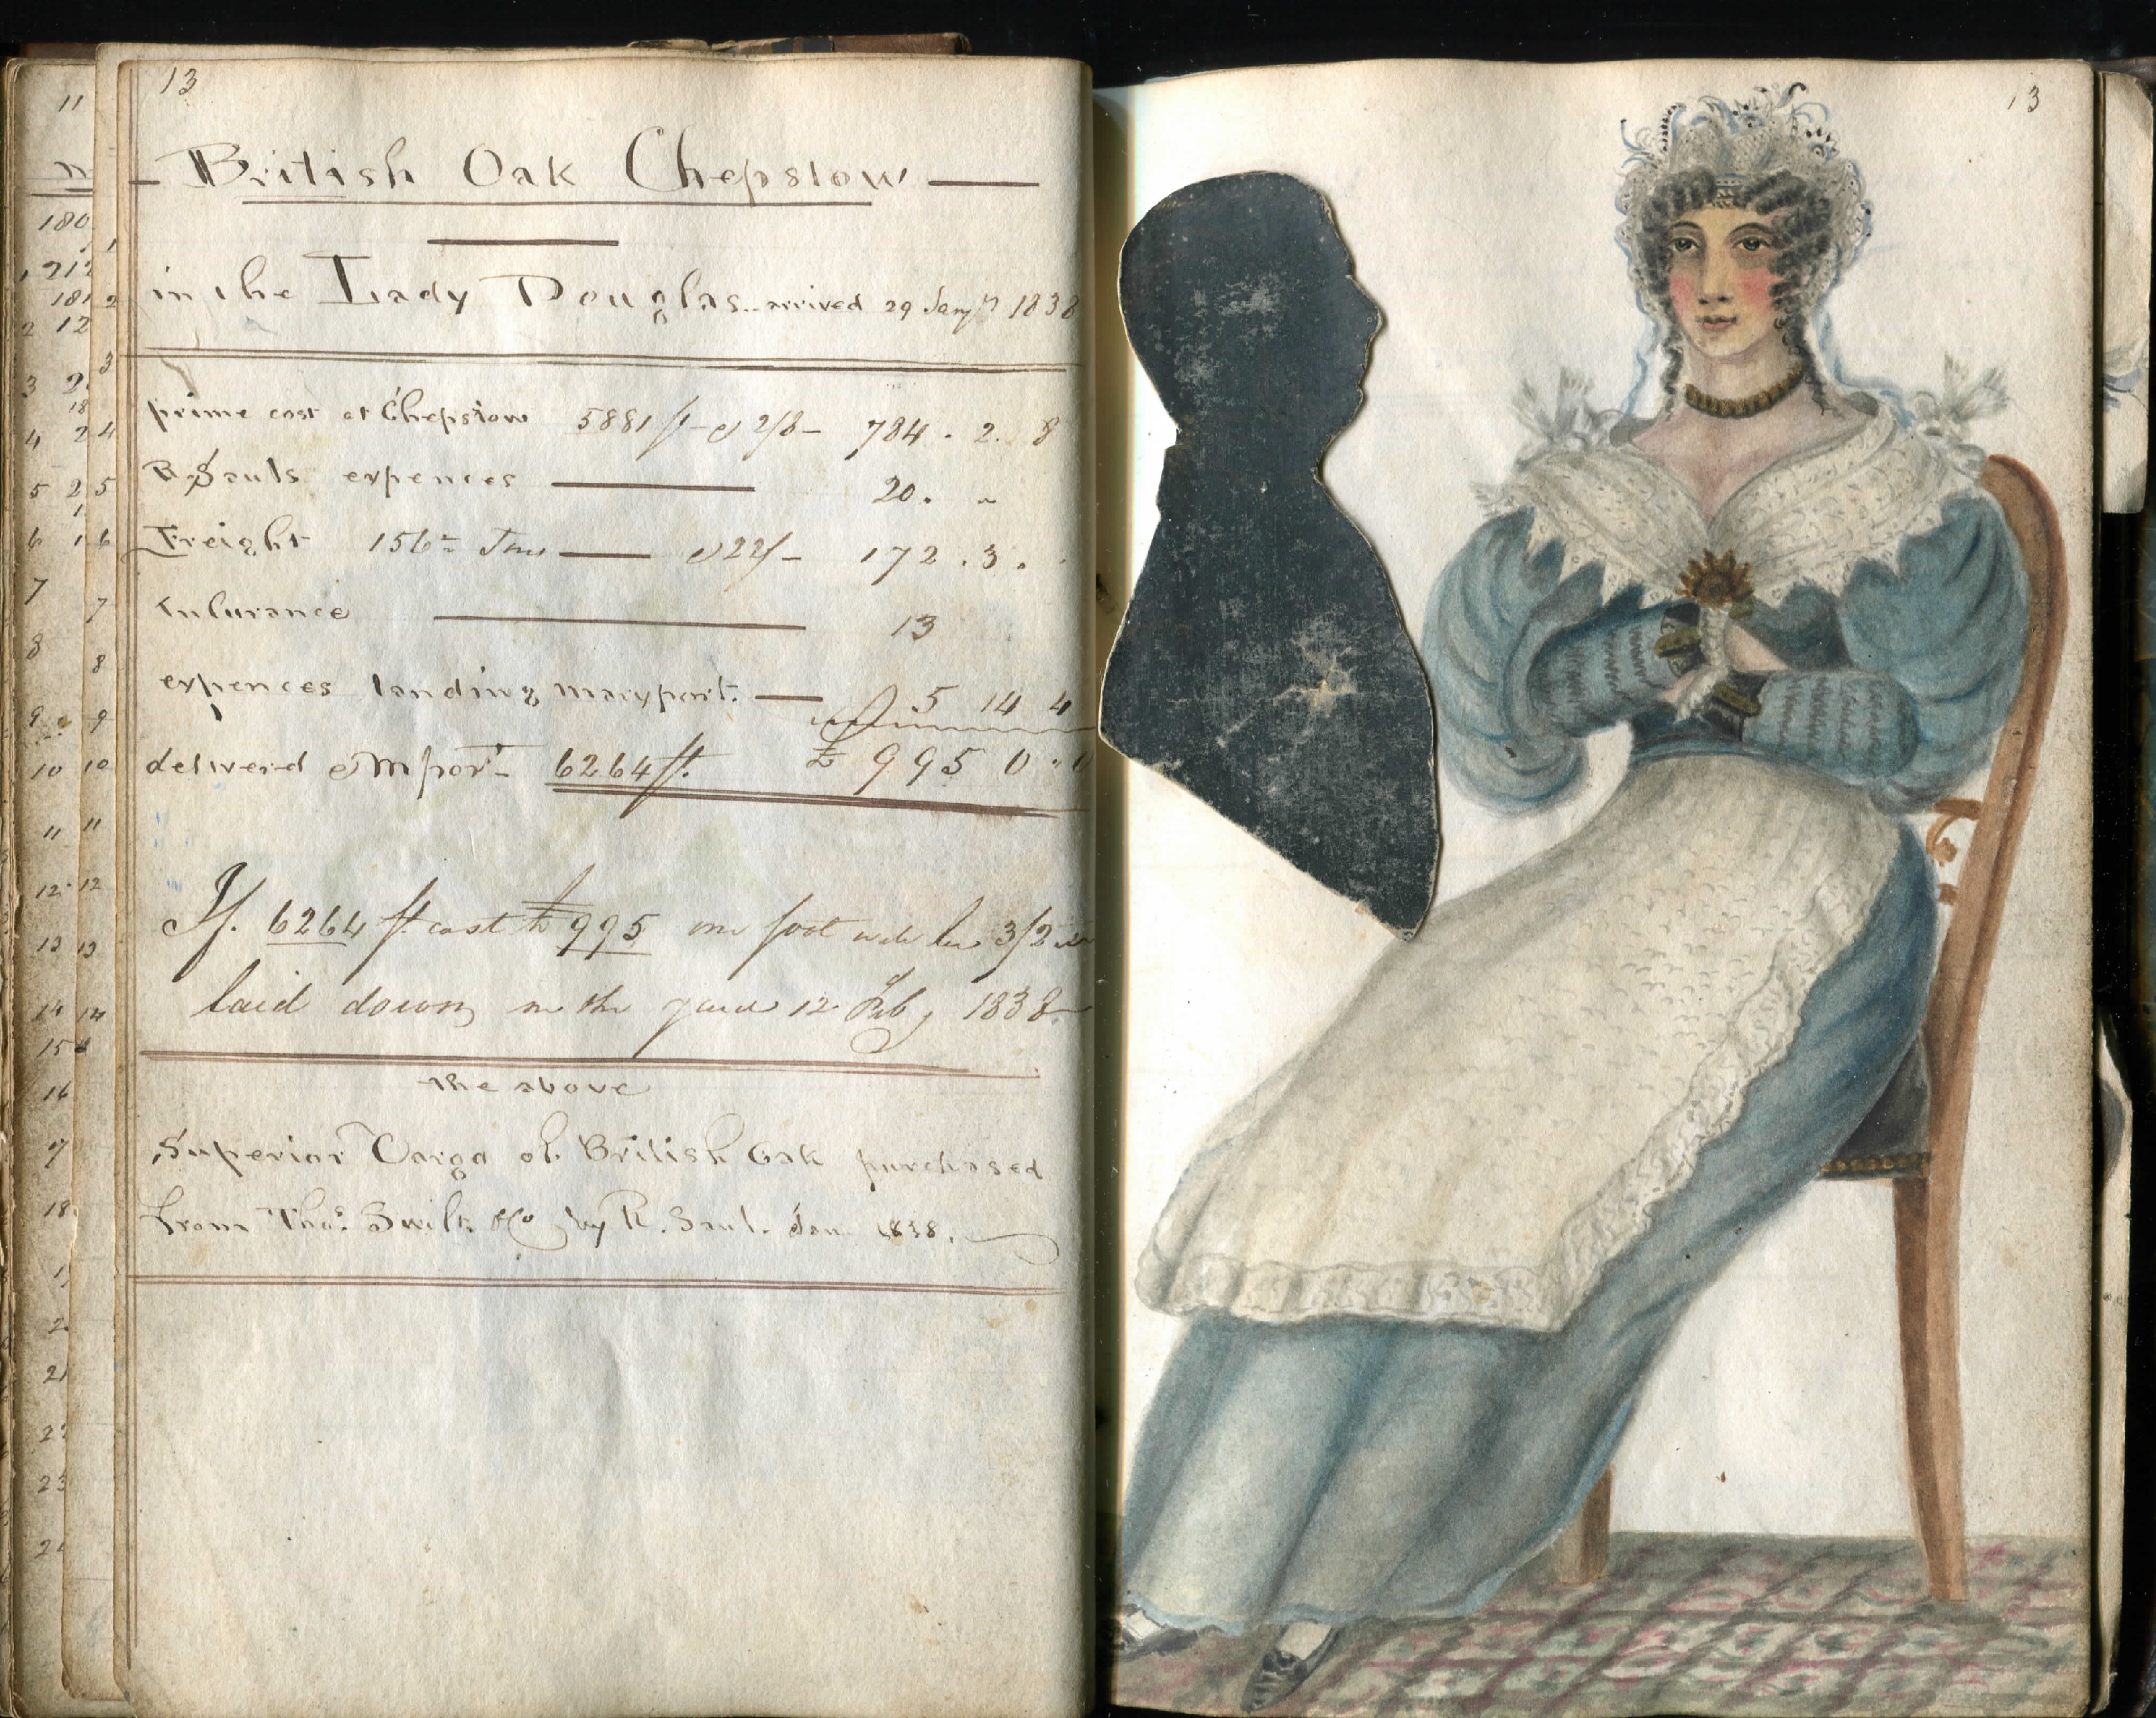 13
British Oak Chepstow
in the Lady Douglas.. arrived 29 Jany 1838
prime cost at Chepstow 5881 ft @ 2/8 784 . 2. 8
R Sauls expences 20. "
Freight 156 Tons @ 22/- 172 . 3 .
Insurance 13
expences landing maryport. 5 14 4
delivered @ Mport 6264 ft. £ 995 0 " 0
If. 6264 ft cost £ 995 one foot will be 3/2
laid down in the yard 12 Feby 1838
the above
Superior Cargo of British Oak purchased
from Thos. Swift & Co by R. Saul. Jan 1838.
13
11
180
212
181
12
1
2
3
4
5
6
7
8
9
10
11
12
13
14
15
16
18
21
23
1
2
3
4
5
6
7
8
9
10
11
12
13
14